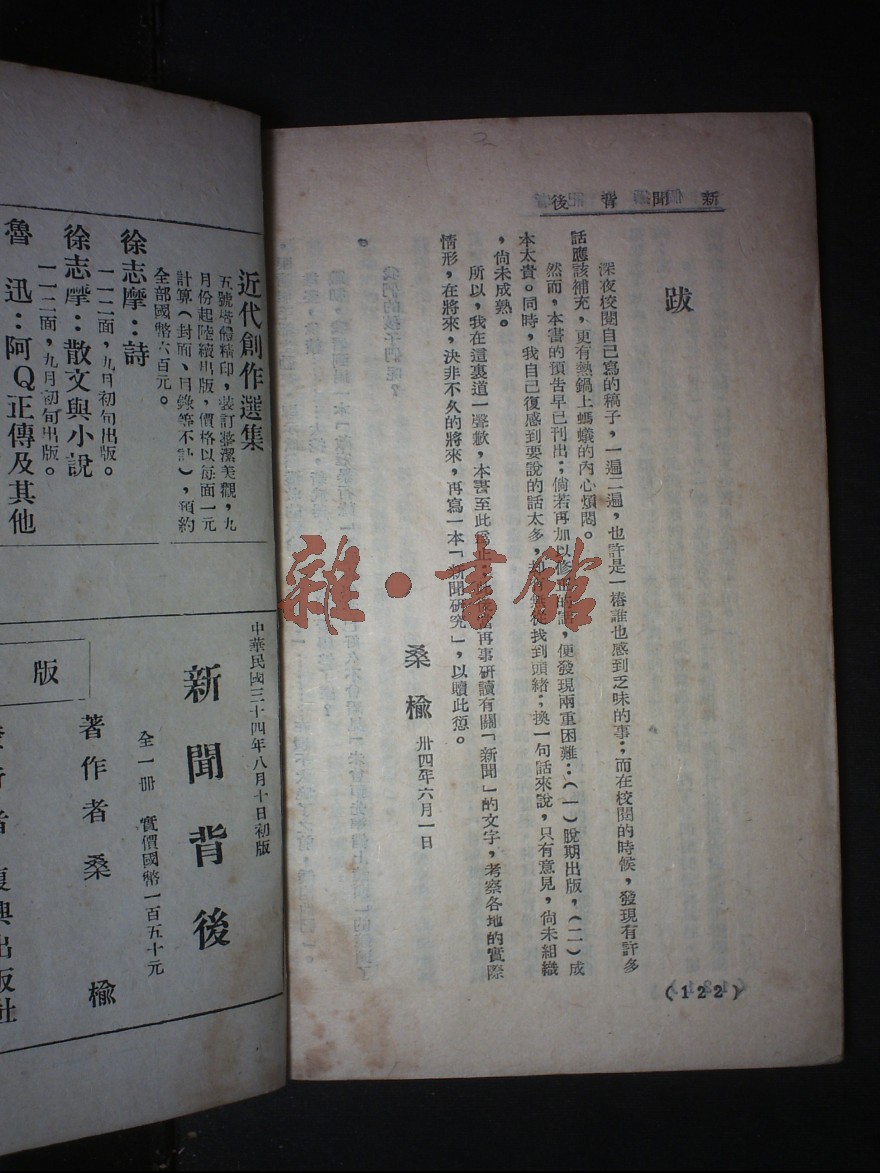 新聞背後
跋
深夜校閱自己寫的稿子，一遍二遍，也許是一樁誰也感到乏味的事；而在校閱的時候，發現有許多
話應該補充，更有熱鍋上螞蟻的內心煩悶。
然而，本書的預告早已刊出；倘若再加以修正的話，便發現兩重困難：（一）脫期出版，（二）成
本太貴。同時，我自己復感到要說的話太多，却無從找到頭緒；換一句話來說，只有意見，尙未組織
，尙未成熟。
所以，我在這裏道一聲歉，本書至此爲止，再事研讀有關「新聞」的文字，考察各地的實際
情形，在將來，決非不久的將來，再寫一本「新聞研究」，以贖此愆。
桑榆 卅四年六月一日
(122)
雜·書館
近代創作選集
五號塔體精印，裝訂整潔美觀，九
月份起陸續出版，價格以每面一元
計算（封面、目錄等不計），預約
全部國幣六百元。
徐志摩：詩
一一二面，九月初旬出版。
徐志摩：散文與小說
一一二面，九月初旬出版。
魯迅：阿Q正傳及其他
中華民國三十四年八月十日初版
新聞背後
全一冊 實價國幣一百五十元
著作者桑榆
復興出版社
版